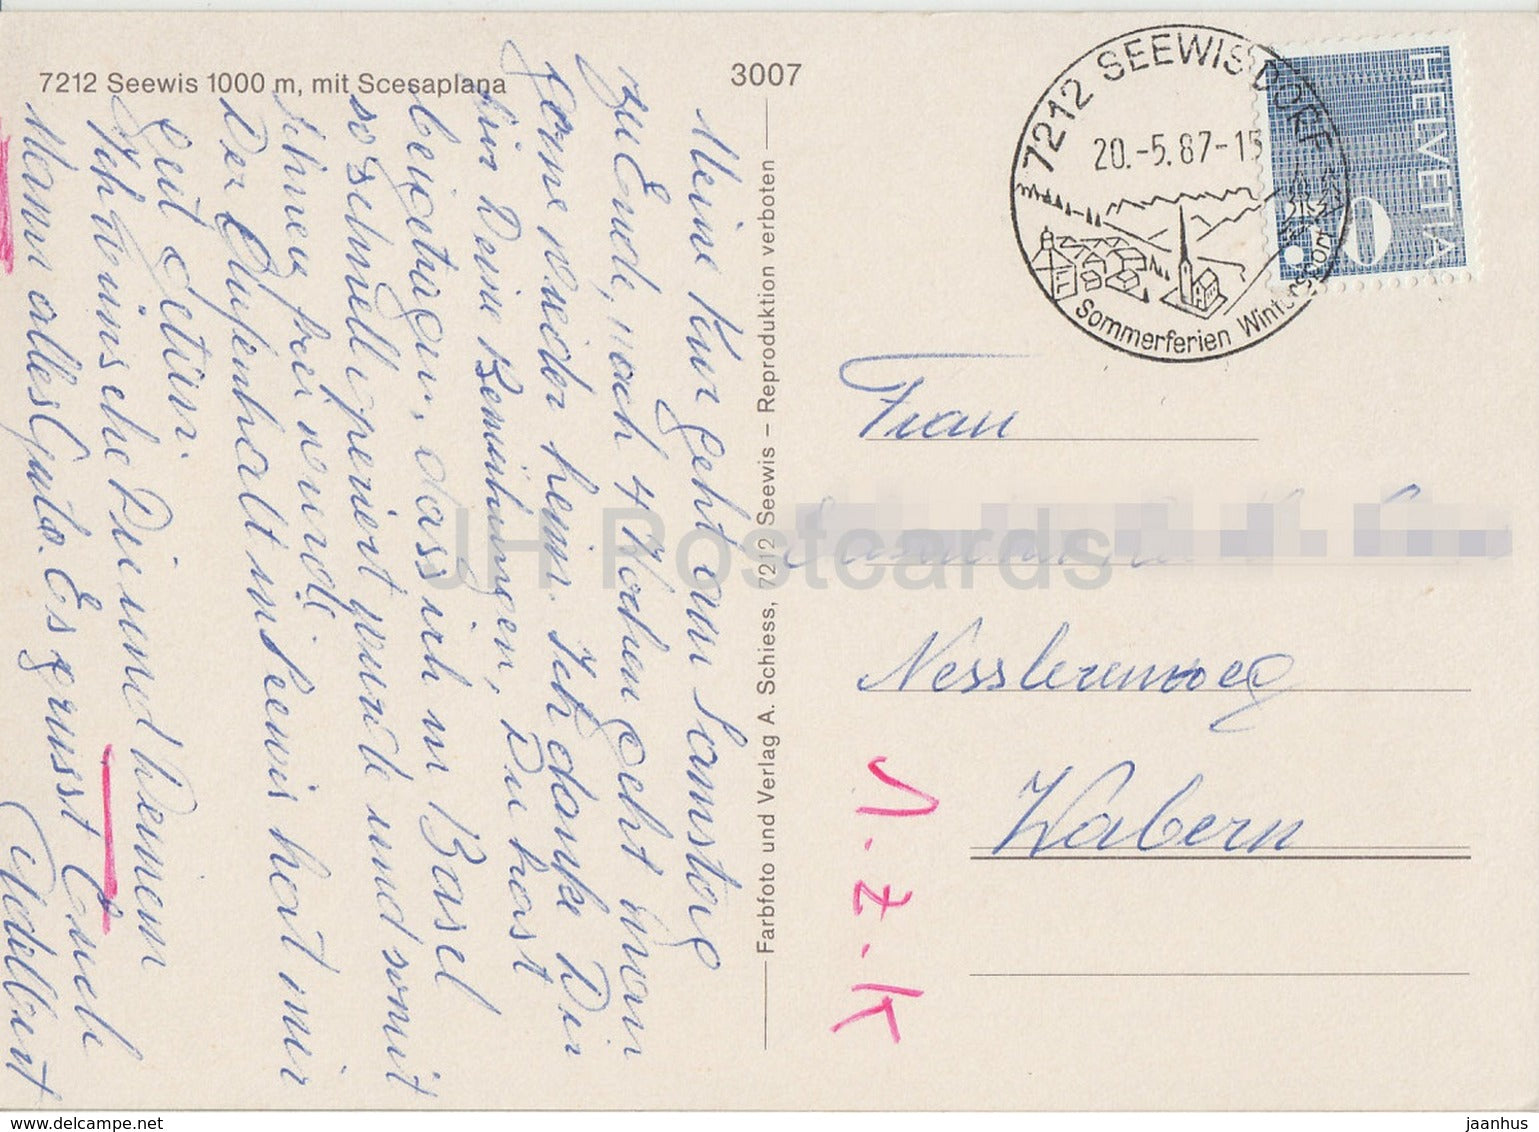 7212 Seewis 1000 m, mit Scesaplana
3007
7212 SEEWIS DORF
20.-5.87-15
Sommerferien Wintersport
HELVETIA
Meine Kur geht am Samstag
zu Ende, nach 4 Wochen geht man
gerne wieder heim. Ich danke Dir
für Deine Bemühungen, Du hast
beigetragen, dass ich in Basel
so schnell operiert wurde und somit
schmerzfrei wurde.
Der Aufenthalt in Seewis hat mir
gut getan.
Ich wünsche Dir und Deinem
Mann alles Gute. Es grüsst Euch
Adelbert
Farbfoto und Verlag A. Schiess, 7212 Seewis – Reproduktion verboten
Frau
Nesslerenweg
Wabern
1.-Z.-K
JH Postcards
www.delcampe.net
jaanhus